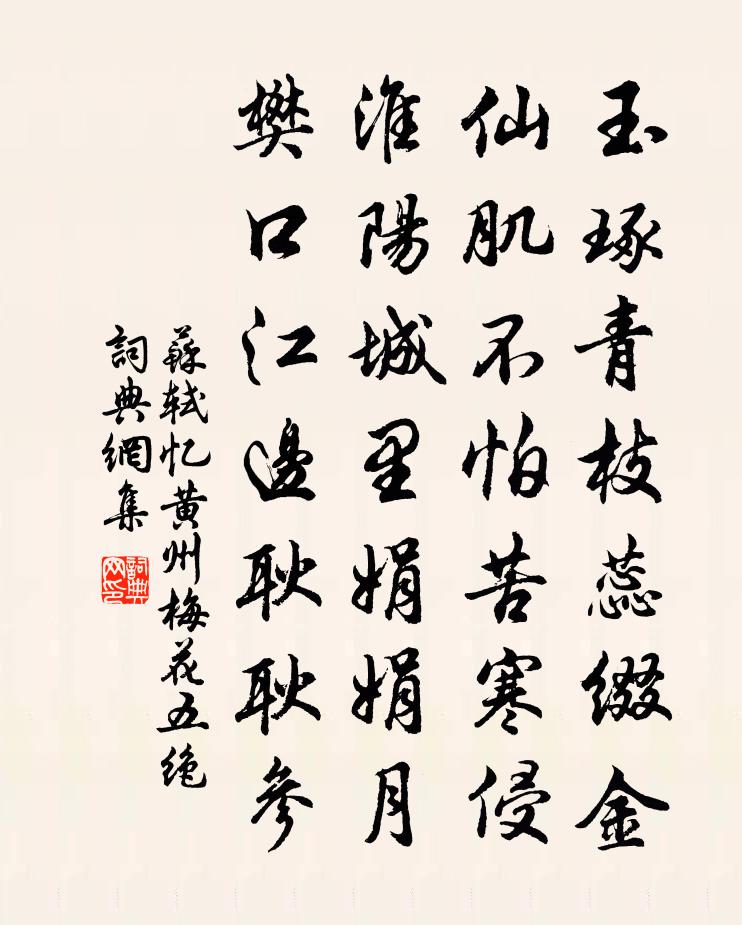 玉琢青枝蕊缀金
仙肌不怕苦寒侵
淮陽城里娟娟月
樊口江邊耿耿參
蘇轼忆黄州梅花五绝
詞典網集
詞典网印